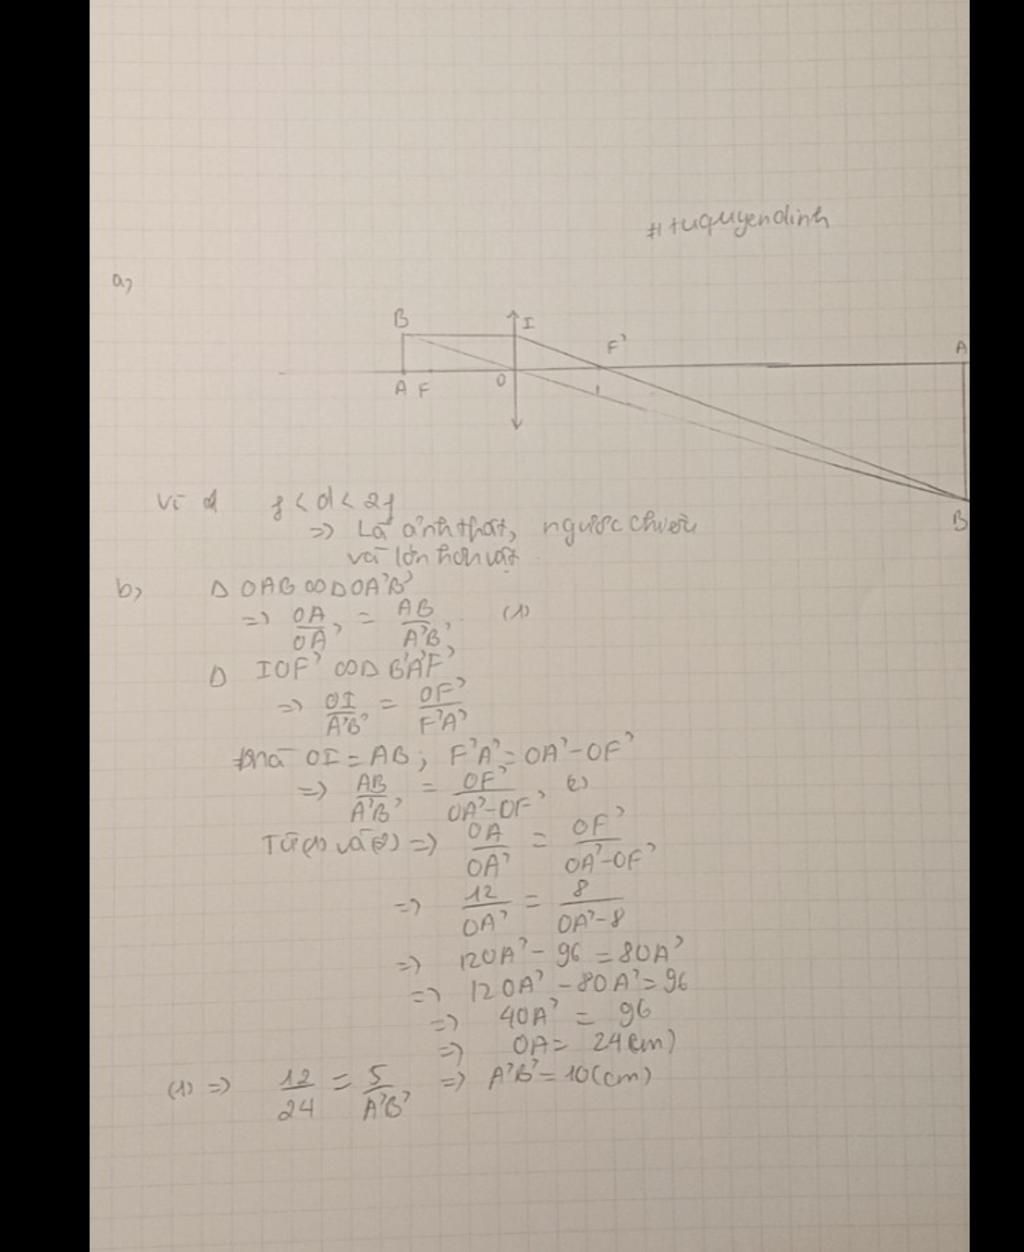 #tuquyendinh
a,
B I F' A
A F O
B
Vì d f < d < 2f
=> Là ảnh thật, ngược chiều
và lớn hơn vật
b, Δ OAB ∽ Δ OA'B'
=> OA/OA' = AB/A'B' (1)
Δ IOF' ∽ Δ B'A'F'
=> OI/A'B' = OF'/F'A'
mà OI = AB; F'A' = OA' - OF'
=> AB/A'B' = OF'/OA'-OF' (2)
Từ (1) và (2) => OA/OA' = OF'/OA'-OF'
=> 12/OA' = 8/OA'-8
=> 12OA' - 96 = 8OA'
=> 12OA' - 8OA' = 96
=> 4OA' = 96
=> OA = 24(cm)
(1) => 12/24 = 5/A'B' => A'B' = 10(cm)